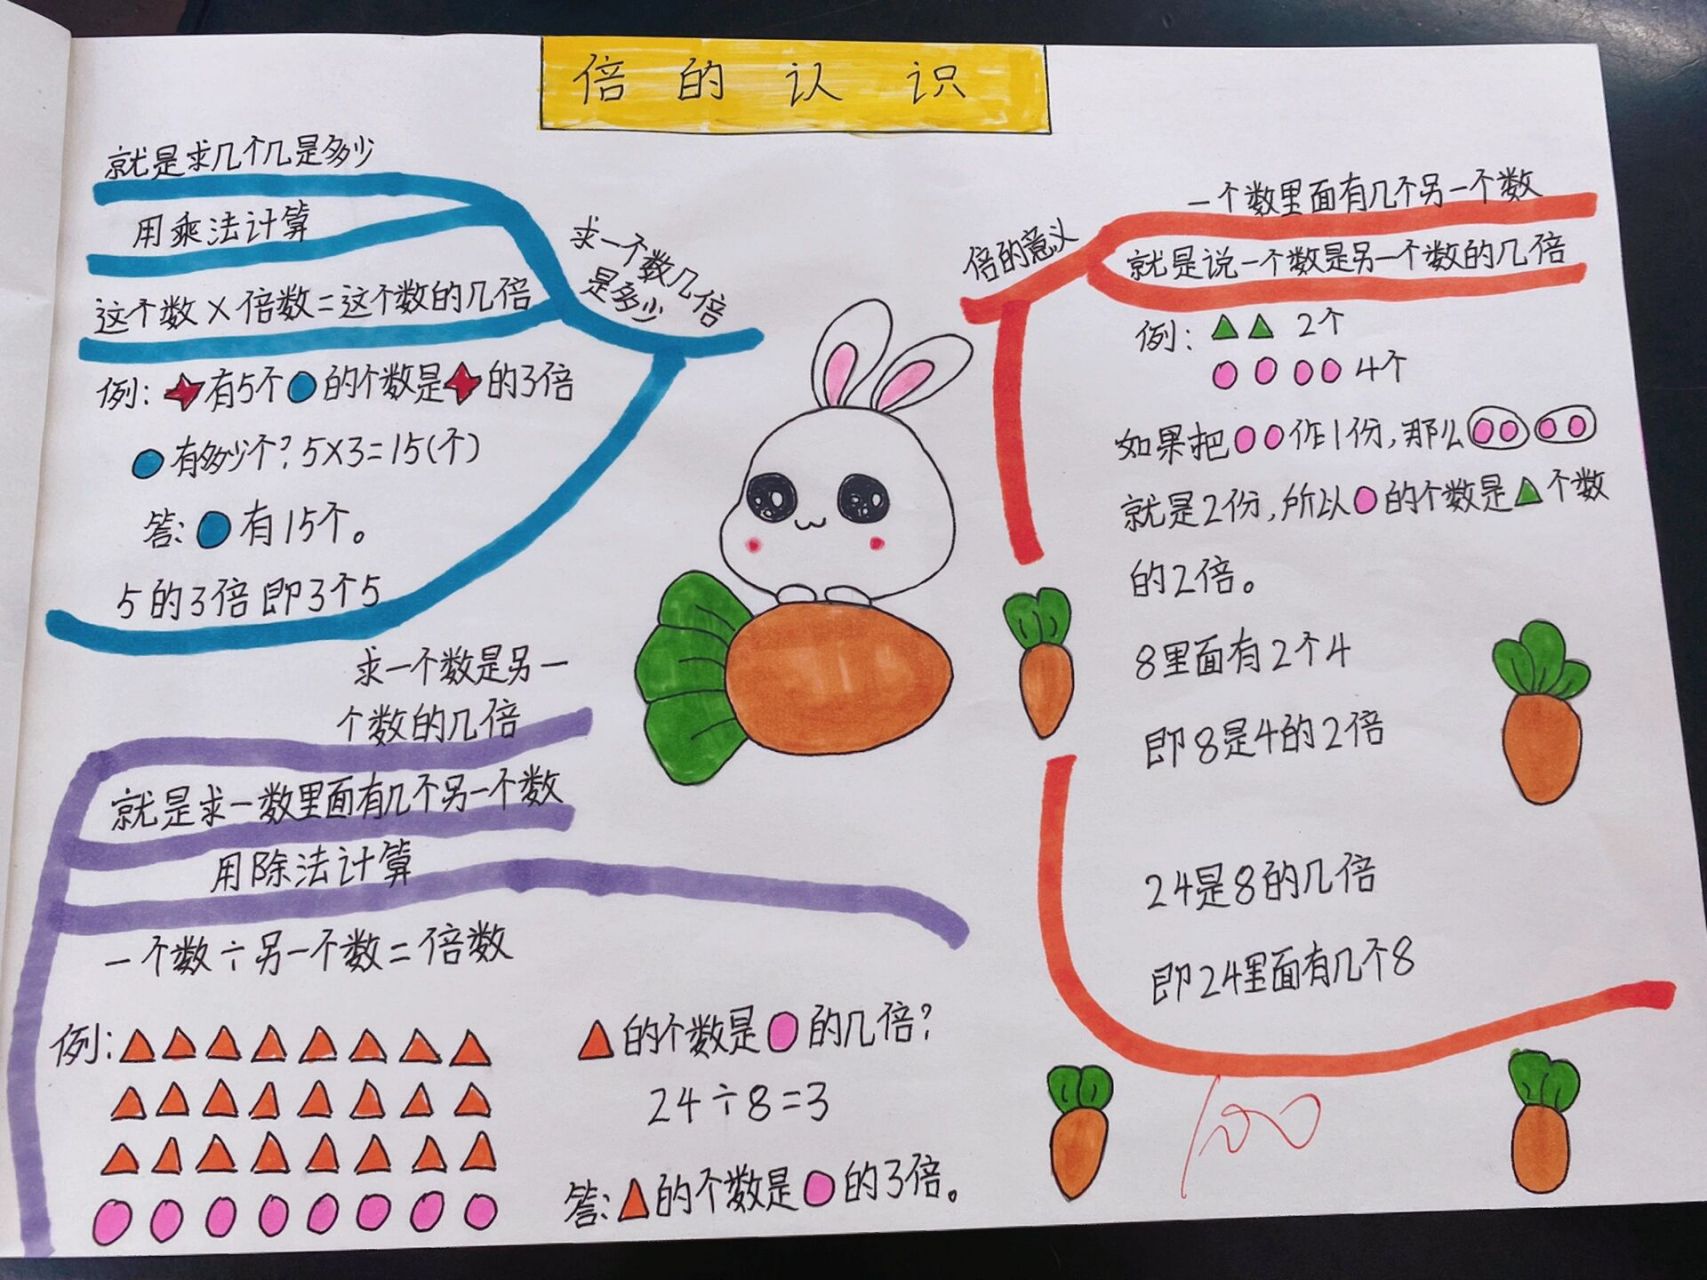 倍的认识
就是求几个几是多少
用乘法计算
这个数×倍数=这个数的几倍
求一个数几倍
是多少
例:有5个的个数是的3倍
有多少个?5×3=15(个)
答:有15个。
5的3倍即3个5
求一个数是另一
个数的几倍
就是求一数里面有几个另一个数
用除法计算
一个数÷另一个数=倍数
例:
的个数是的几倍?
24÷8=3
答:的个数是的3倍。
倍的意义
一个数里面有几个另一个数
就是说一个数是另一个数的几倍
例: 2个
4个
如果把作1份,那么
就是2份,所以的个数是个数
的2倍。
8里面有2个4
即8是4的2倍
24是8的几倍
即24里面有几个8
100